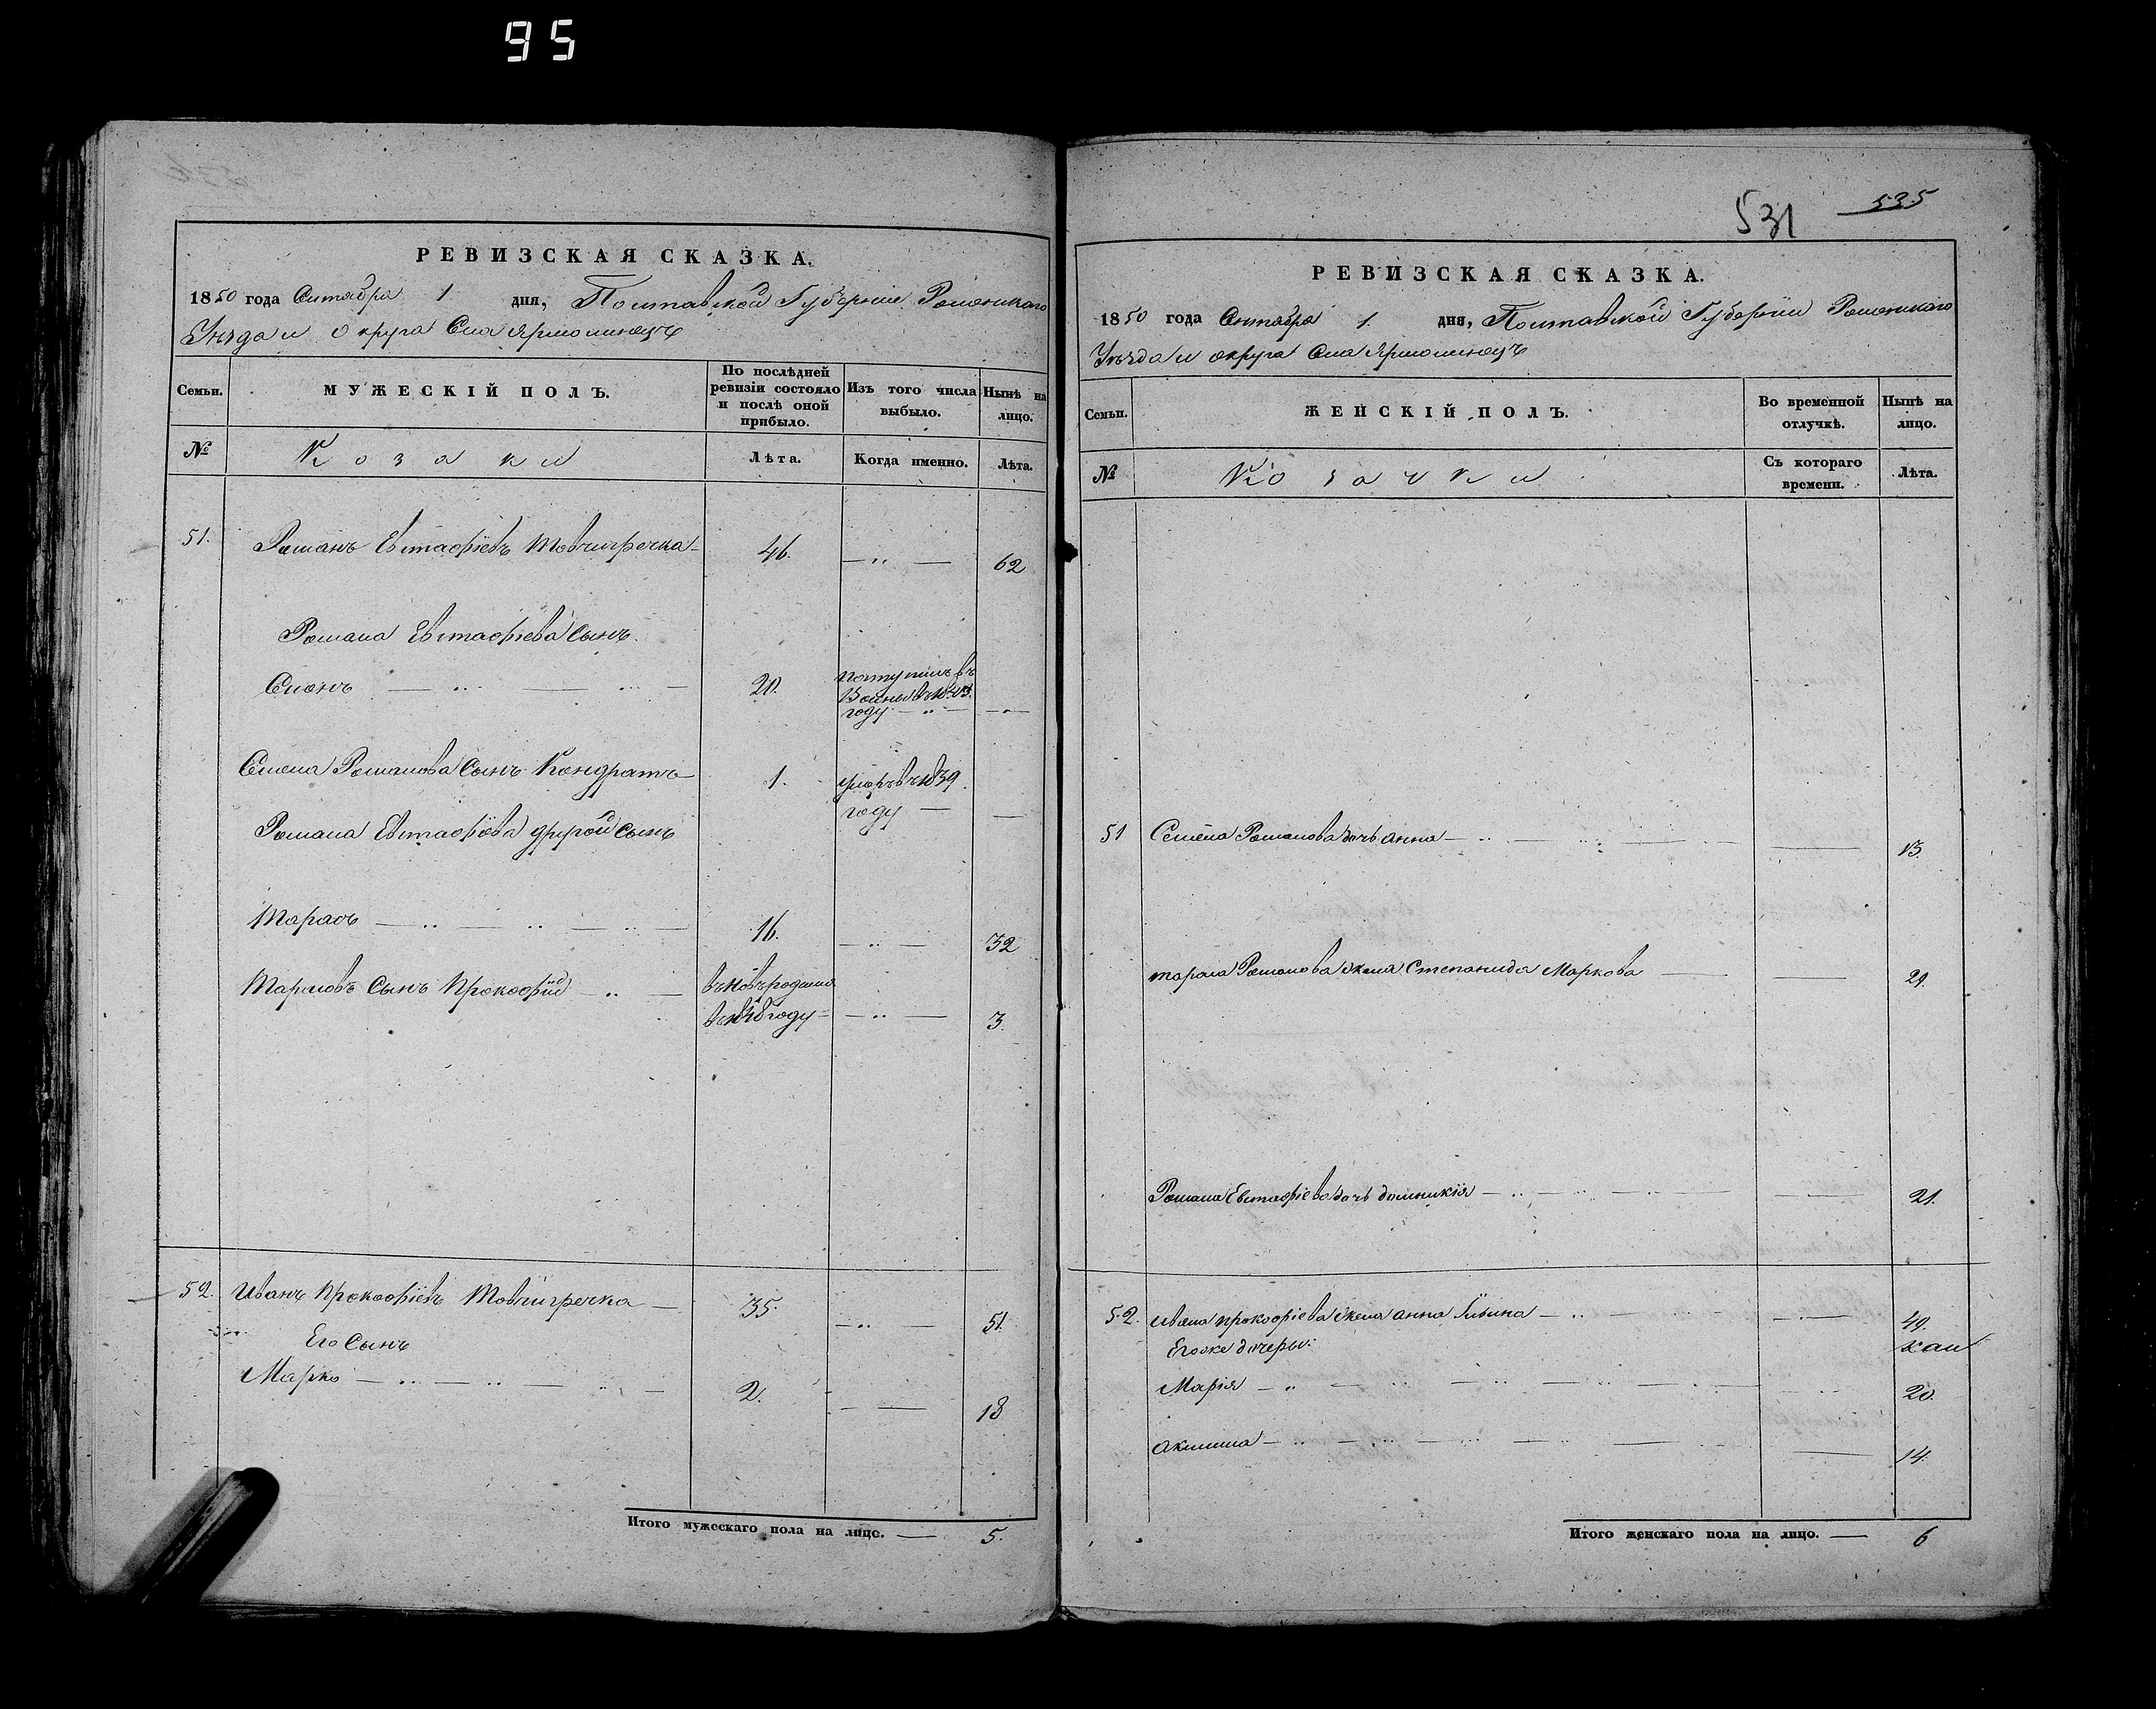 95
РЕВИЗСКАЯ СКАЗКА.
1850 года Октября 1 дня, Полтавской Губернии Роменскаго
Уезда и округа Села Ярмолинецъ
Семьи.
МУЖЕСКІЙ ПОЛЪ.
По послѣдней ревизіи состояло и послѣ оной прибыло.
Изъ того числа выбыло.
Нынѣ на лицо.
№
Козаки
Лѣта.
Когда именно.
Лѣта.
51. Романъ Евтафіевъ Товчигречка 46. 62
Романа Евтафіева Сынъ
Семенъ 20. поступилъ въ
году
Семена Романова Сынъ Кондратъ 1. умеръ въ 1839
году
Романа Евтафіева другой Сынъ
Тарасъ 16. 32
Тарасовъ Сынъ Прокофій
году 3.
52. Иванъ Прокофіевъ Товчигречка 35. 51.
Его Сынъ
Марко 2. 18
Итого мужескаго пола на лицо. 5.
531 535
РЕВИЗСКАЯ СКАЗКА.
1850 года Октября 1. дня, Полтавской Губерніи Роменскаго
Уѣзда и округа Села Ярмолинецъ
Семьи.
ЖЕНСКІЙ ПОЛЪ.
Во временной отлучкѣ.
Нынѣ на лицо.
№
Козачки
Съ котораго времени.
Лѣта.
51 Семена Романова дочь Анна 13.
Тараса Романова жена Степанида Маркова 29.
Романа Евтафіева дочь Домникія 21.
52. Ивана Прокофіева жена Анна Ильина 49.
Его же дочеры:
Марія 20.
Акилина 14.
Итого женскаго пола на лицо. 6